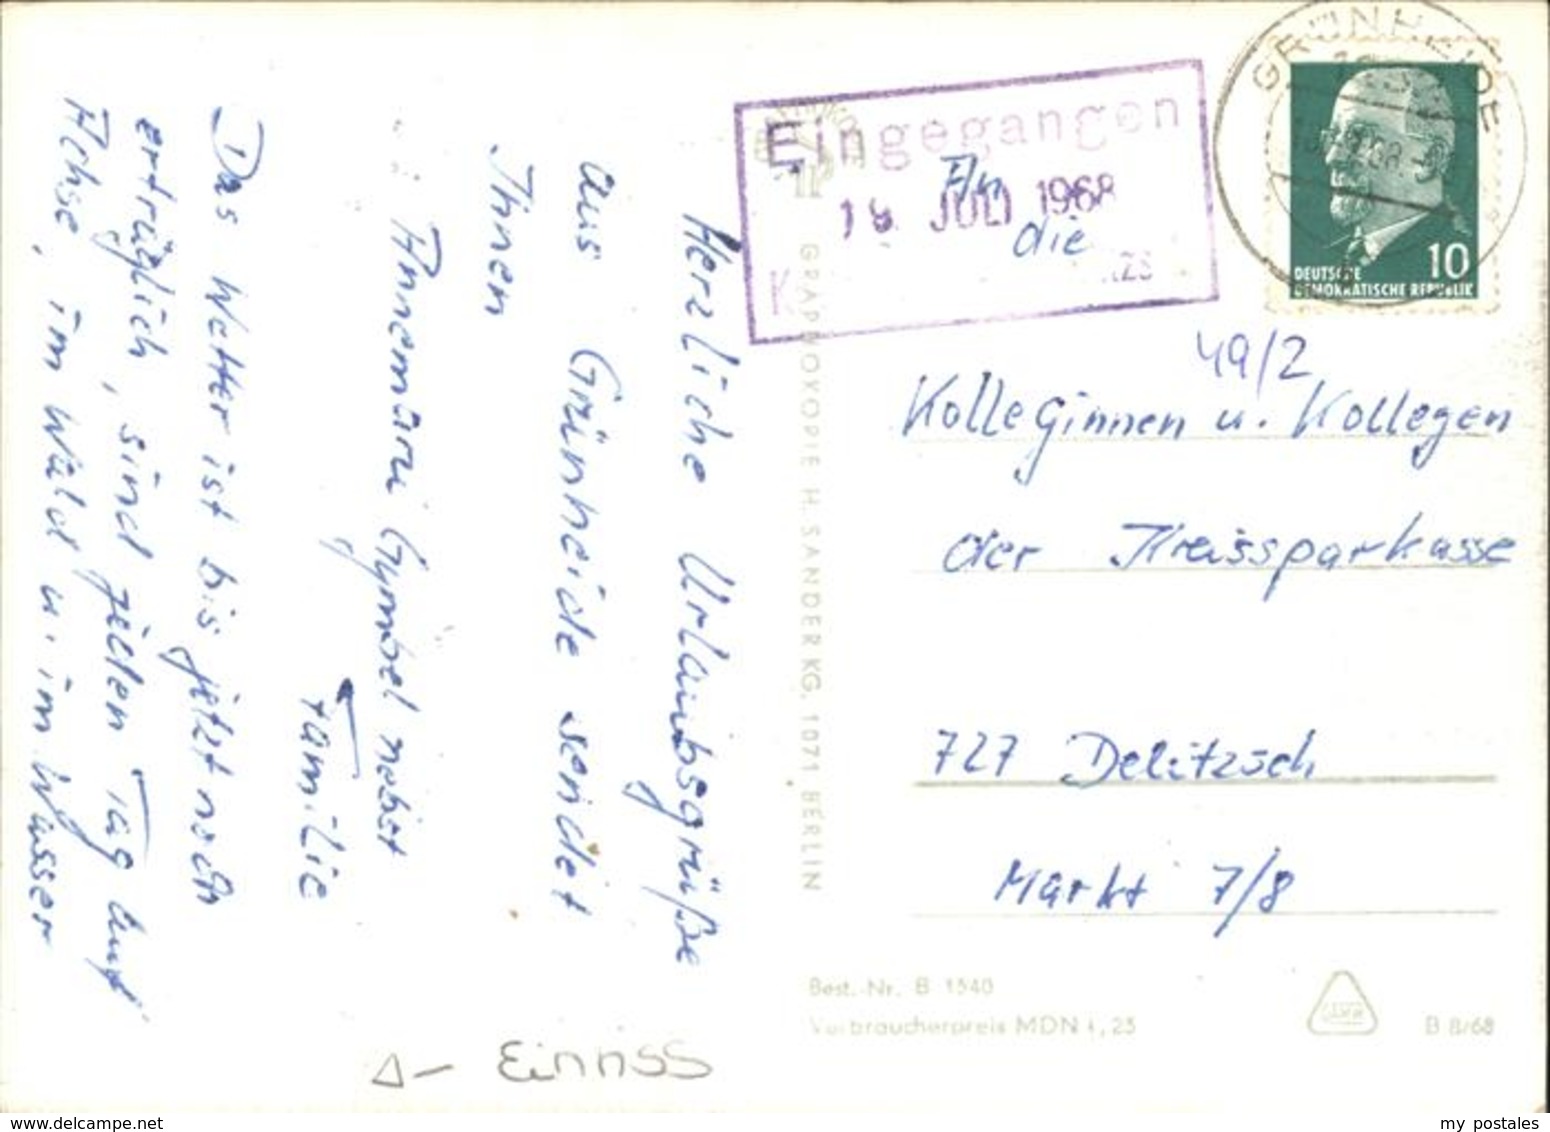 Herzliche Urlaubsgrüße
aus Grünheide sendet
Ihnen
Annemarie Gymbel nebst
Familie
Das Wetter ist bis jetzt noch
erträglich, sind jeden Tag auf
Achse, im Wald u. im Wasser
Eingegangen
18. JULI 1968
GRÜNHEIDE
DEUTSCHE
DEMOKRATISCHE REPUBLIK
10
An
die
49/2
Kolleginnen u. Kollegen
der Kreissparkasse
727 Delitzsch
Markt 7/8
GRAPHOKOPIE H. SANDER KG, 1071 BERLIN
Best.-Nr. B 1540
Verbraucherpreis MDN 0,25
B 8/68
Einriss
www.delcampe.net
my postales